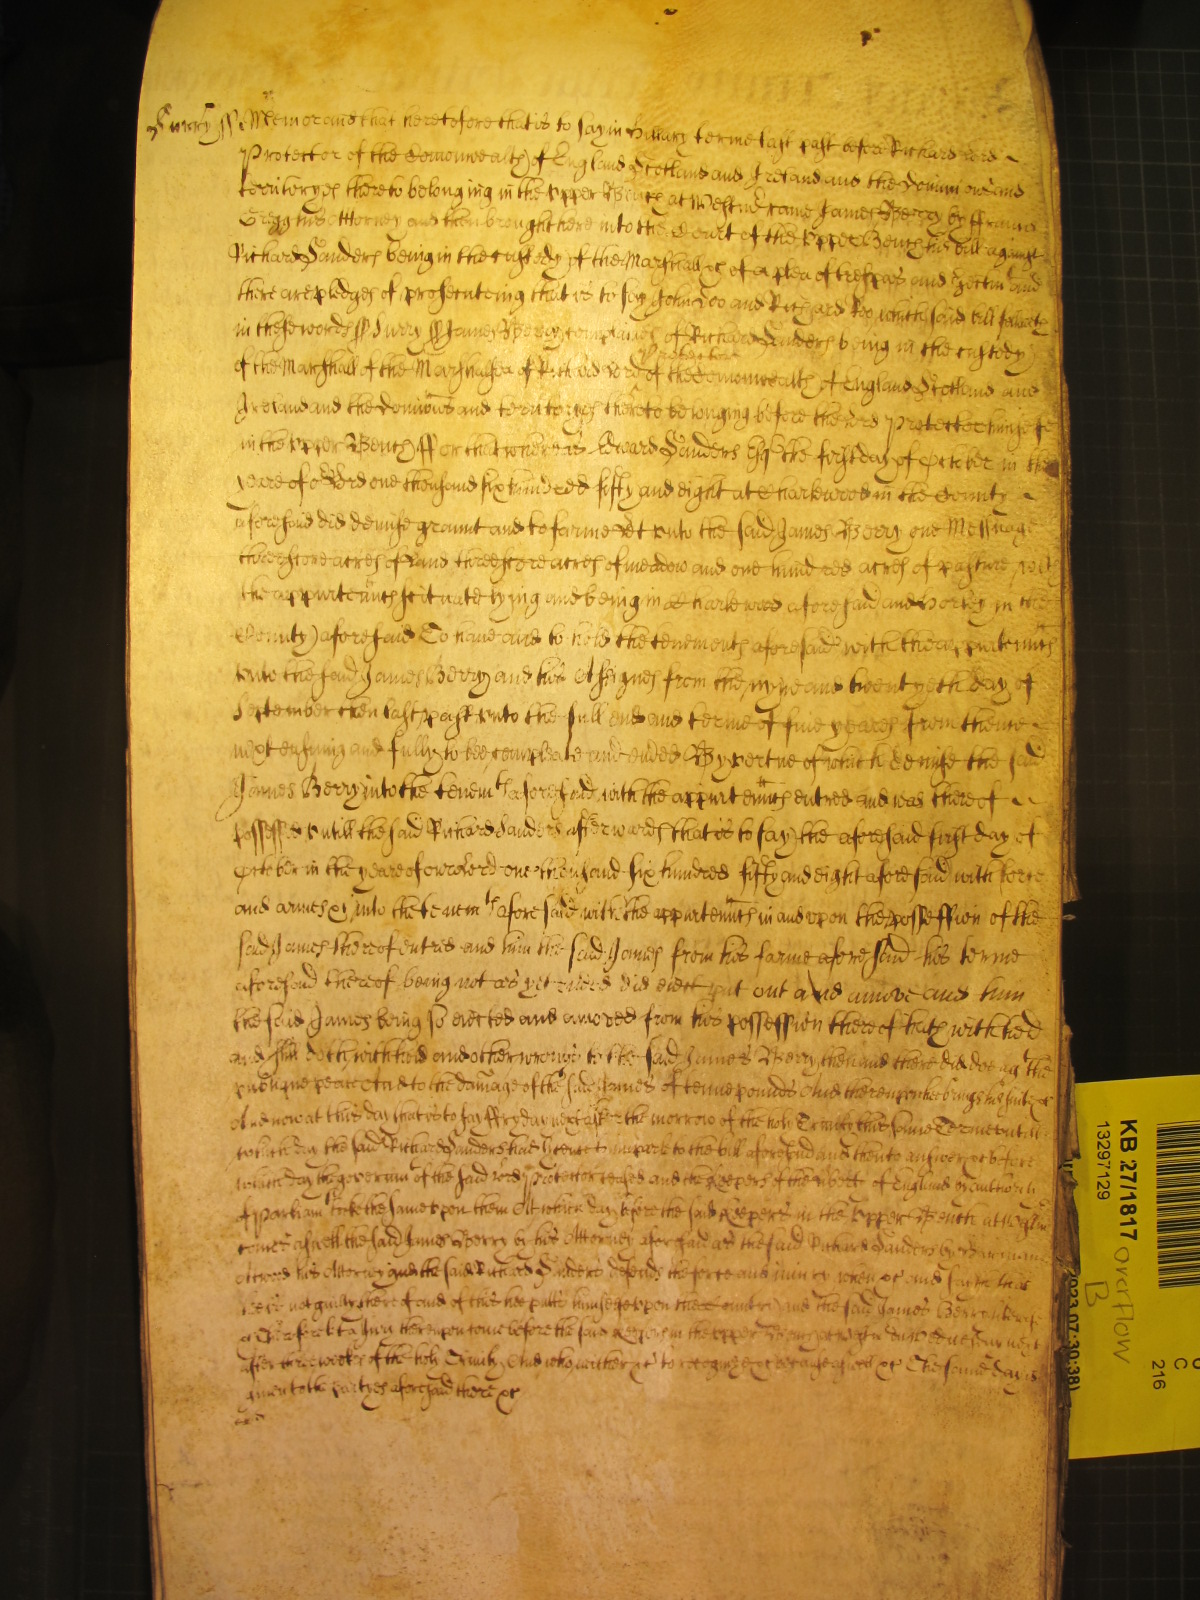 Surry ss Memorand that heretofore that is to say in Hillary terme last past before Richard Lord
Protector of the Comonwealth of England Scotland and Ireland and the Dominions and
territoryes thereto belonging in the upper Bench at Westm came James Berry by Francis
Gregg his Attorney and then brought here into the Court of the Upper Bench his bill against
Richard Sanders being in the custody of the Marshall &c of a plea of trespas and Ejectm and
there are pledges of prosecuteing that is to say John Doo and Richard Roo which said bill followeth
in these words ss Surry ss James Berry complaines of Richard Sanders being in the custody
of the Marshall of the Marshalsea of Richard Lord Protector of the Comonwealth of England Scotland and
Ireland and the Dominions and territoryes thereto belonging before the Lord Protector himselfe
in the upper Bench For that whereas Edward Sanders Esq the first day of October in the
yeare of or Lord one thousand six hundred fifty and eight at Charlewood in the County
aforesaid did demise graunt and to farme let unto the said James Berry one Messuage
threescore acres of land threescore acres of meadow and one hundred acres of pasture with
the appurtenncs scituate lying and being in Charlewood aforesaid and Horley in the
County aforesaid To have and to hold the tenements aforesaid with the appurtenncs
unto the said James Berry and his Assignes from the nyne and twentyeth day of
September then last past unto the full end and terme of five yeares from thence
next ensuing and fully to bee compleate and ended By vertue of which demise the said
James Berry into the tenemts aforesaid with the appurtenncs entred and was thereof
possessed untill the said Richard Sanders afterwards that is to say the aforesaid first day of
October in the yeare of our Lord one thousand six hundred fifty and eight aforesaid with force
and armes &c into the tenemts aforesaid with the appurtenncs in and upon the possession of the
said James thereof entred and him the said James from his farme aforesaid his terme
aforesaid thereof being not as yet ended did eiect put out and amove and him
the said James being so eiected and amoved from his possession thereof hath withheld
and still doth withhold and other wrongs to the said James Berry then and there did doe agt the
publique peace And to the damage of the said James of tenne pounds And thereupon hee brings his suit &c
And now at this day that is to say Fryday next after the morrow of the holy Trinity this same Terme untill
which day the said Richard Sanders had licence to imparle to the bill aforesaid and then to answer &c before
which day the governm of the said Lord Protector ceased and the Keepers of the liberty of England by authority
of Parliam tooke the same upon them At which day before the said Keepers in the Upper Bench at Westm
comes aswell the said James Berry by his Attorney aforesaid as the said Richard Sanders by
Atwood his Attorney and the said Richard Sanders defends the force and iniury when &c and saith that
hee is not guilty thereof and of this hee putts himselfe upon the Country and the said James Berry likewise
&c Therefore let a Jury thereupon come before the said Keepers in the upper Bench at Westm on Wednesday next
after three weeks of the holy Trinity And who neither &c to recognize &c because aswell &c The same day is
given to the partyes aforesaid there &c
KB 27/1817
13297129
Overflow
B
216
C
2023 07:30:38)